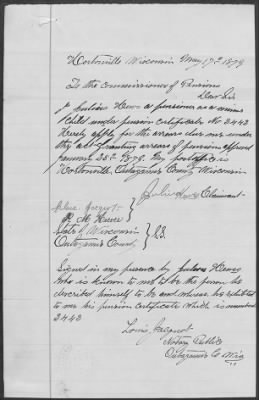 Hortonville Wisconsin May 17th 1879
To the commissioner of Pensions
Dear Sir
I Julius Hews a pensioner as a minor
child under pension certificate No 2443
Hereby apply for the arrears due me under
the act granting arrears of pensions approved
January 25th 1879. My postoffice is
Hortonville, Outagamie County, Wisconsin
Julius Hews Claimant
Jacquot
R. M.
State of Wisconsin
Outagamie County } S.S.
Signed in my presence by Julius Hews
who is known to me to be the person he
described himself to be and whom he exhibited
to me his pension certificate which is numbered
2443
Louis Jacquot
Notary Public
Outagamie Co Wis